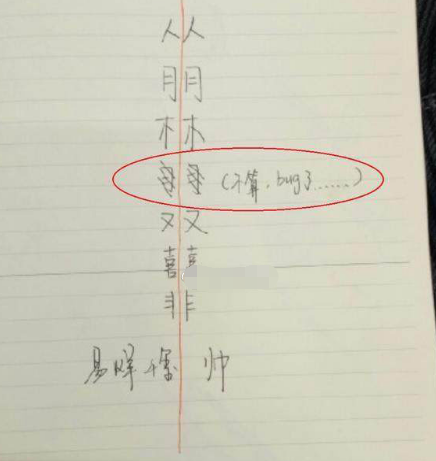 人人
月月
木木
(不算,bug了......)
又又
喜喜
非
易烊千玺 帅